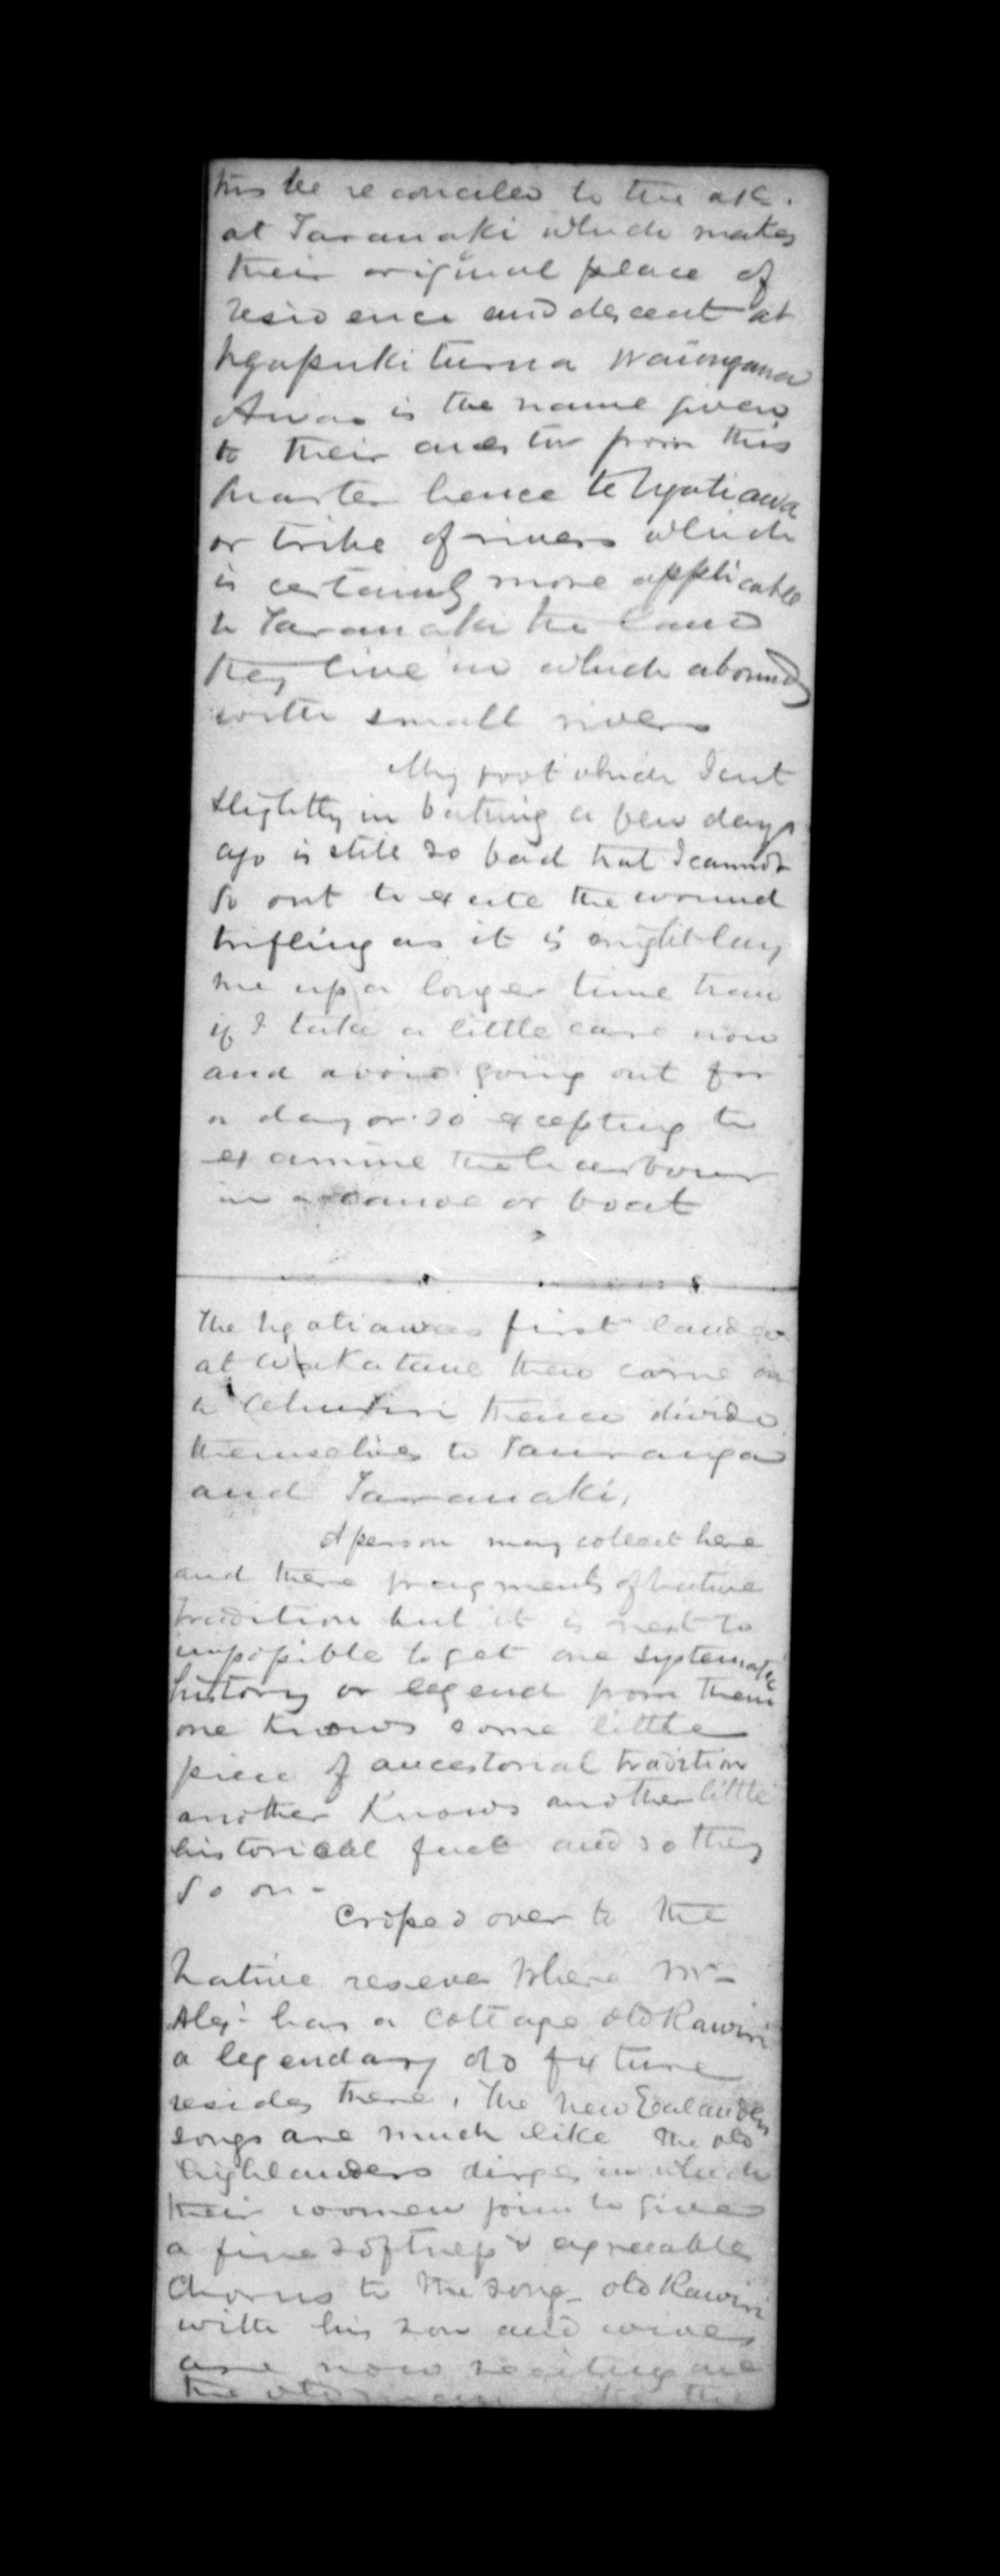 this be reconciled to the
at Taranaki which makes
their original place of
residence and descent at
Ngapukiturua Waiongana
Awa is the name given
to their ancestor from this
quarter hence te Ngatiawa
or tribe of rivers which
is certainly more applicable
to Taranaki the land
they live in which abounds
with small rivers
My foot which I cut
slightly in bathing a few days
ago is still so bad that I cannot
go out to excite the wound
trifling as it is might lay
me up a longer time than
if I take a little care now
and avoid going out for
a day or so excepting to
examine the harbour
in a canoe or boat
The Ngatiawas first landed
at Wakatane then came on
to thence divide
themselves to Tauranga
and Taranaki,
A person may collect here
and there fragments of native
tradition but it is next to
impossible to get one systematic
history or legend from them
one knows some little
piece of ancestorial tradition
another knows another little
historical fact and so they
go on -
Crossed over to the
Native reserve where Mr
has a cottage old Rawiri
a legendary
resides there. The New Zealanders
songs are much like the old
highlanders dirges in which
their women join to give
a fine softness & agreeable
chorus to the song - old Rawiri
with his son and wives
are now reciting one
the old man the